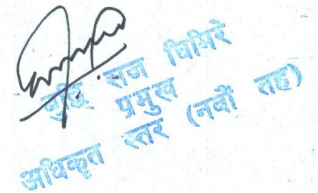 राज घिमिरे
प्रमुख
अधिकृत स्तर (नवौं तह)